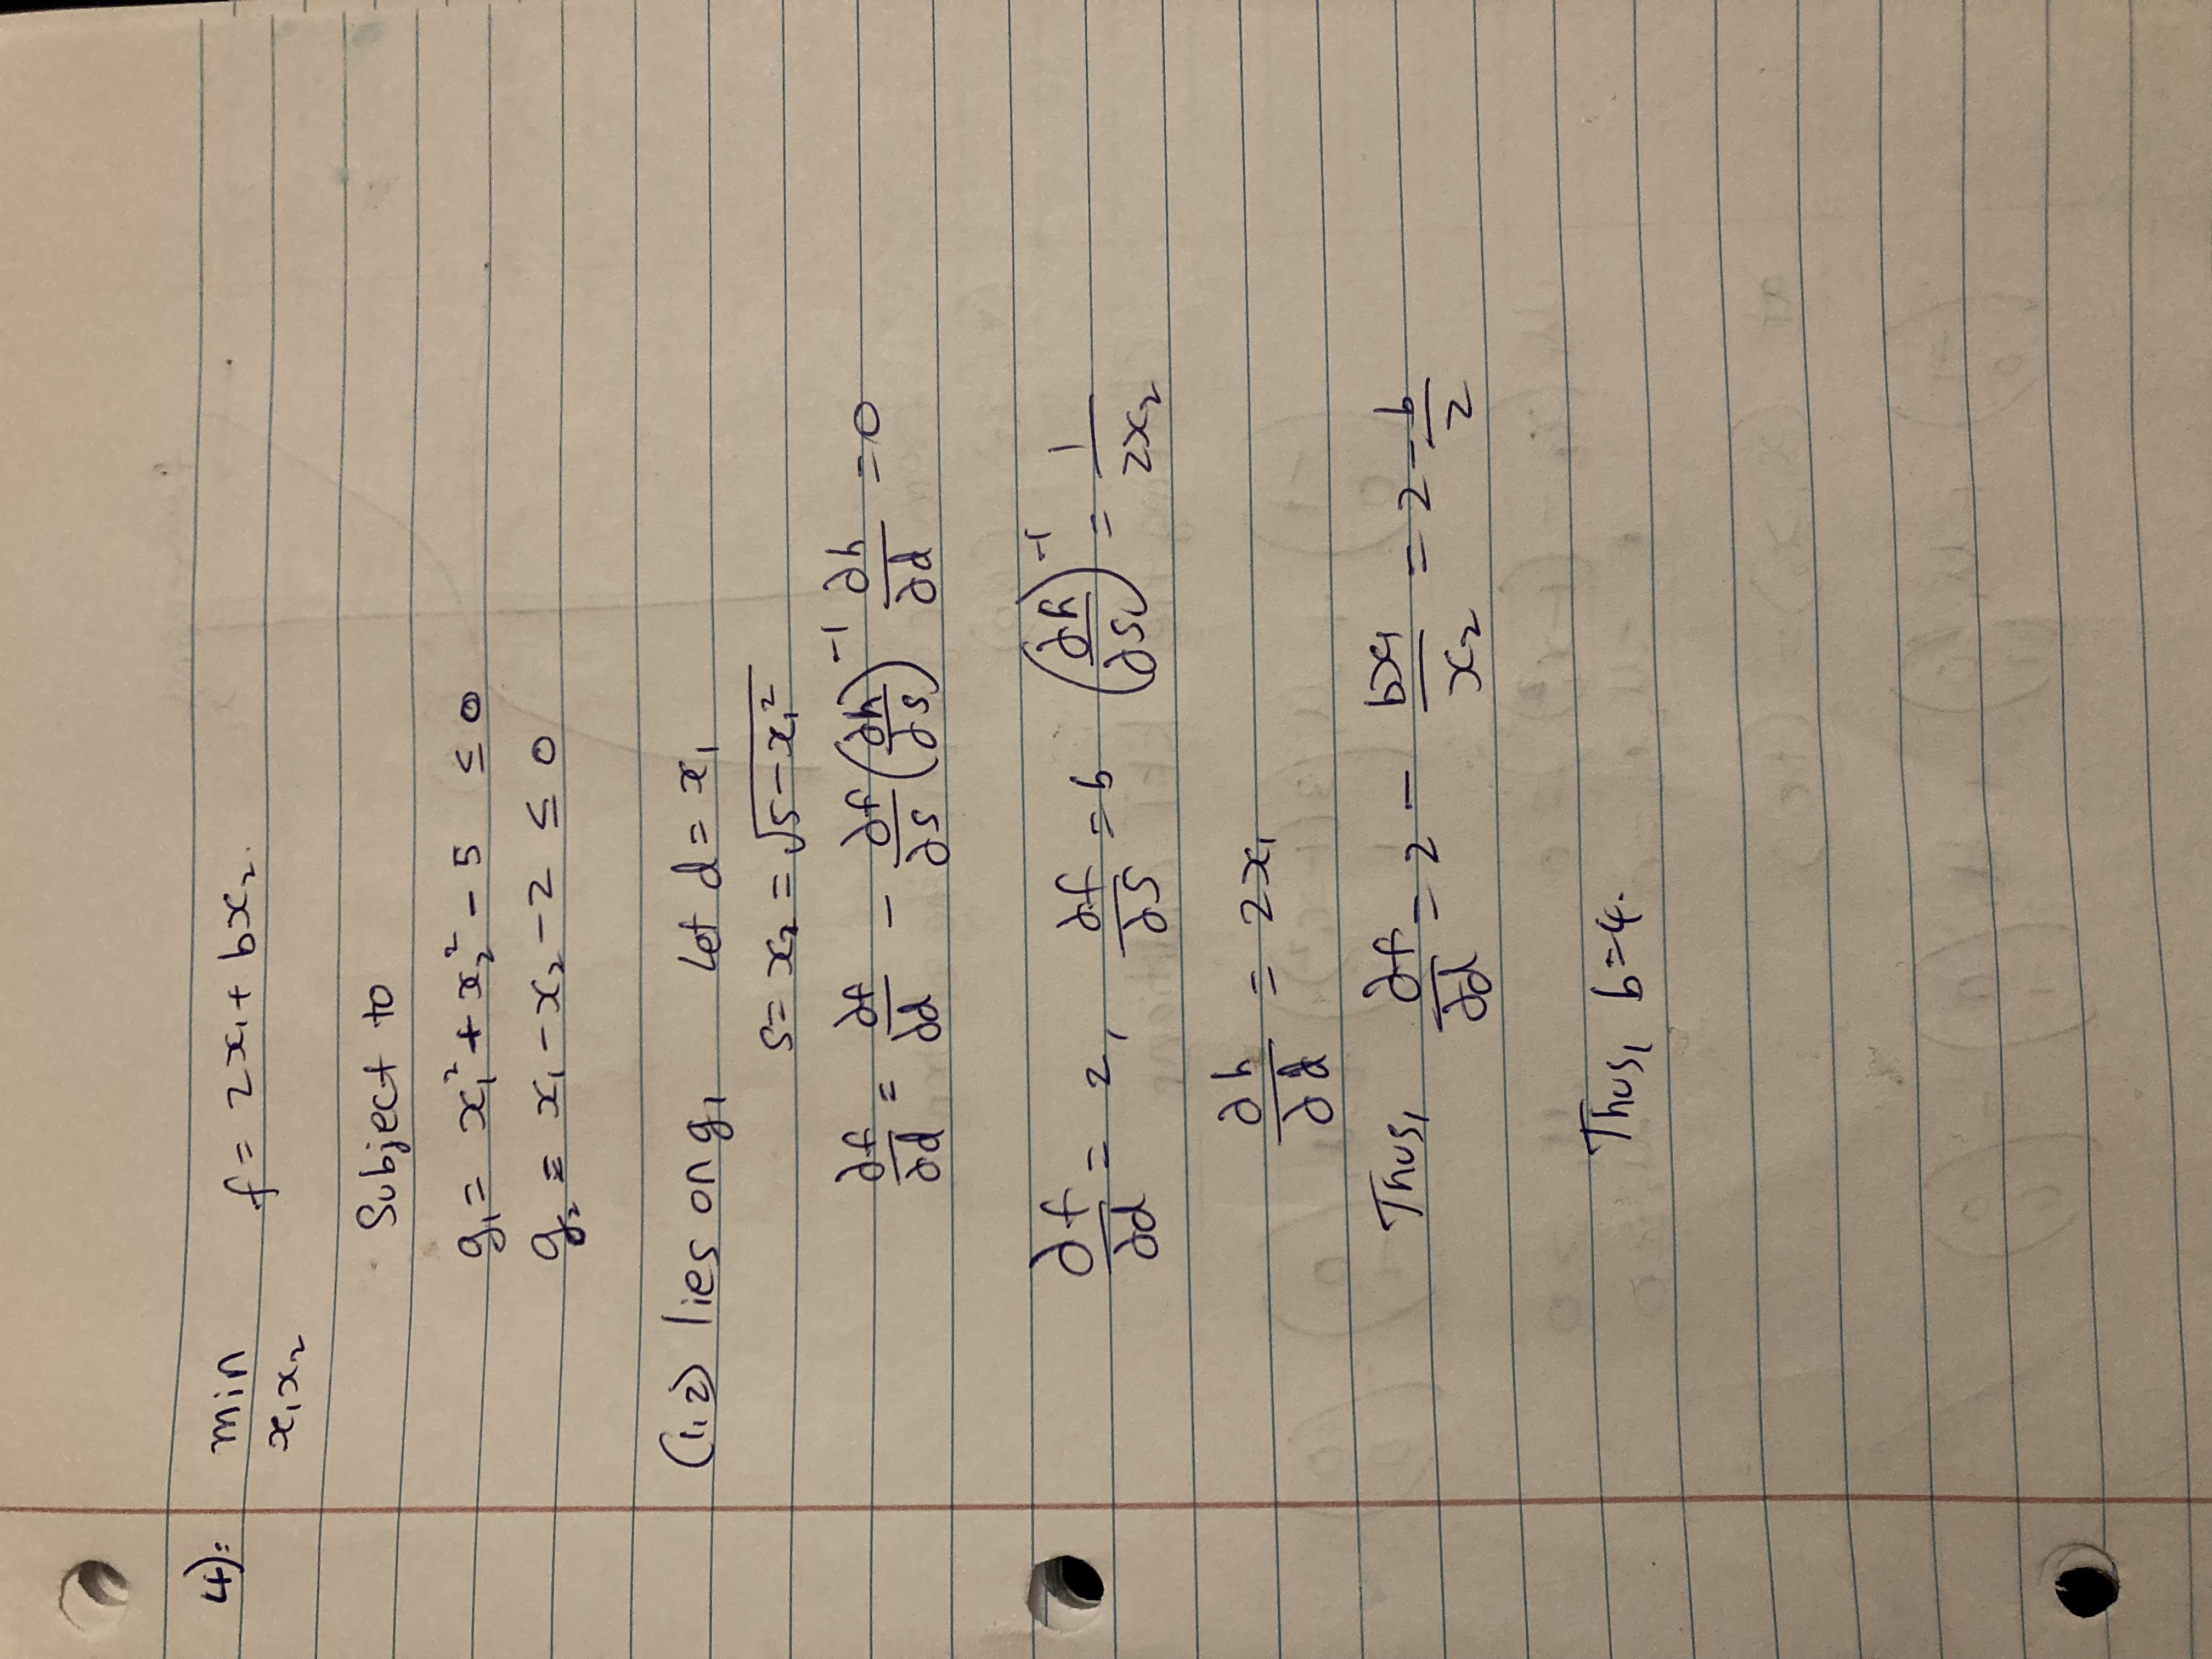 4): min f = 2x₁ + bx₂.
x₁x₂
Subject to
g₁ = x₁² + x₂² - 5 ≤ 0
g₂ = x₁ - x₂ - 2 ≤ 0
(1,2) lies on g₁ Let d = x₁
s = x₂ = √(5-x₁²)
∂f/∂d = ∂f/∂d - ∂f/∂s (∂h/∂s)⁻¹ ∂h/∂d = 0
∂f/∂d = 2, ∂f/∂s = b (∂h/∂s)⁻¹ = 1/2x₂
∂h/∂d = 2x₁
Thus, ∂f/∂d = 2 - bx₁/x₂ = 2 - b/2
Thus, b=4.